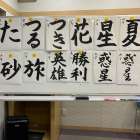 た つる つき 花 星 夏
砂 旅 英雄 勝利 惑星 惑星